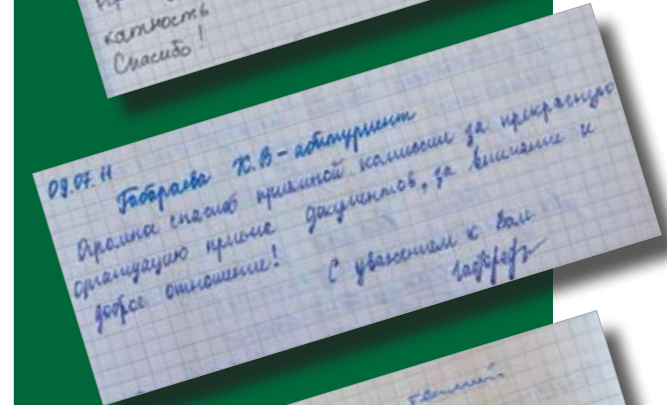 катность
Спасибо!
09.07.11
Габараева Х.В - абитуриент
Огромное спасибо приемной комиссии за прекрасную
организацию приема документов, за внимание и
доброе отношение!
С уважением к Вам